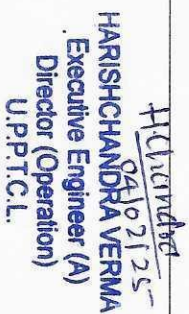 HChandra
04/02/25
HARISHCHANDRA VERMA
Executive Engineer (A)
Director (Operation)
U.P.P.T.C.L.